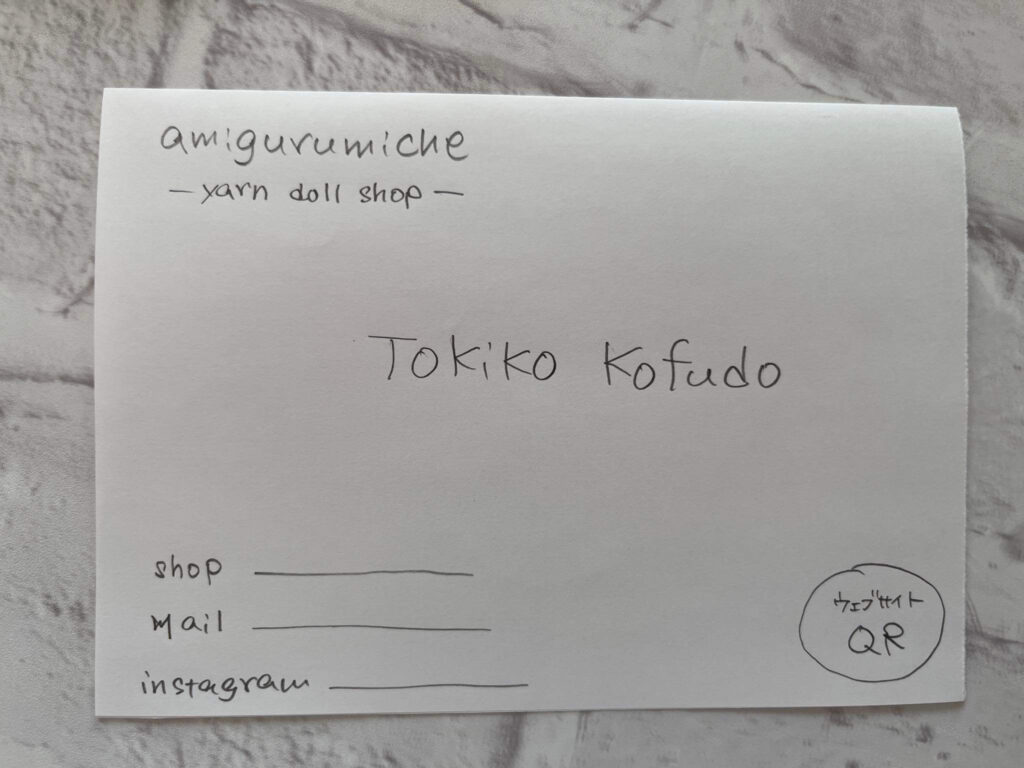 amigurumiche
— yarn doll shop —
Tokiko Kofudo
shop
mail
instagram
ウェブサイト
QR